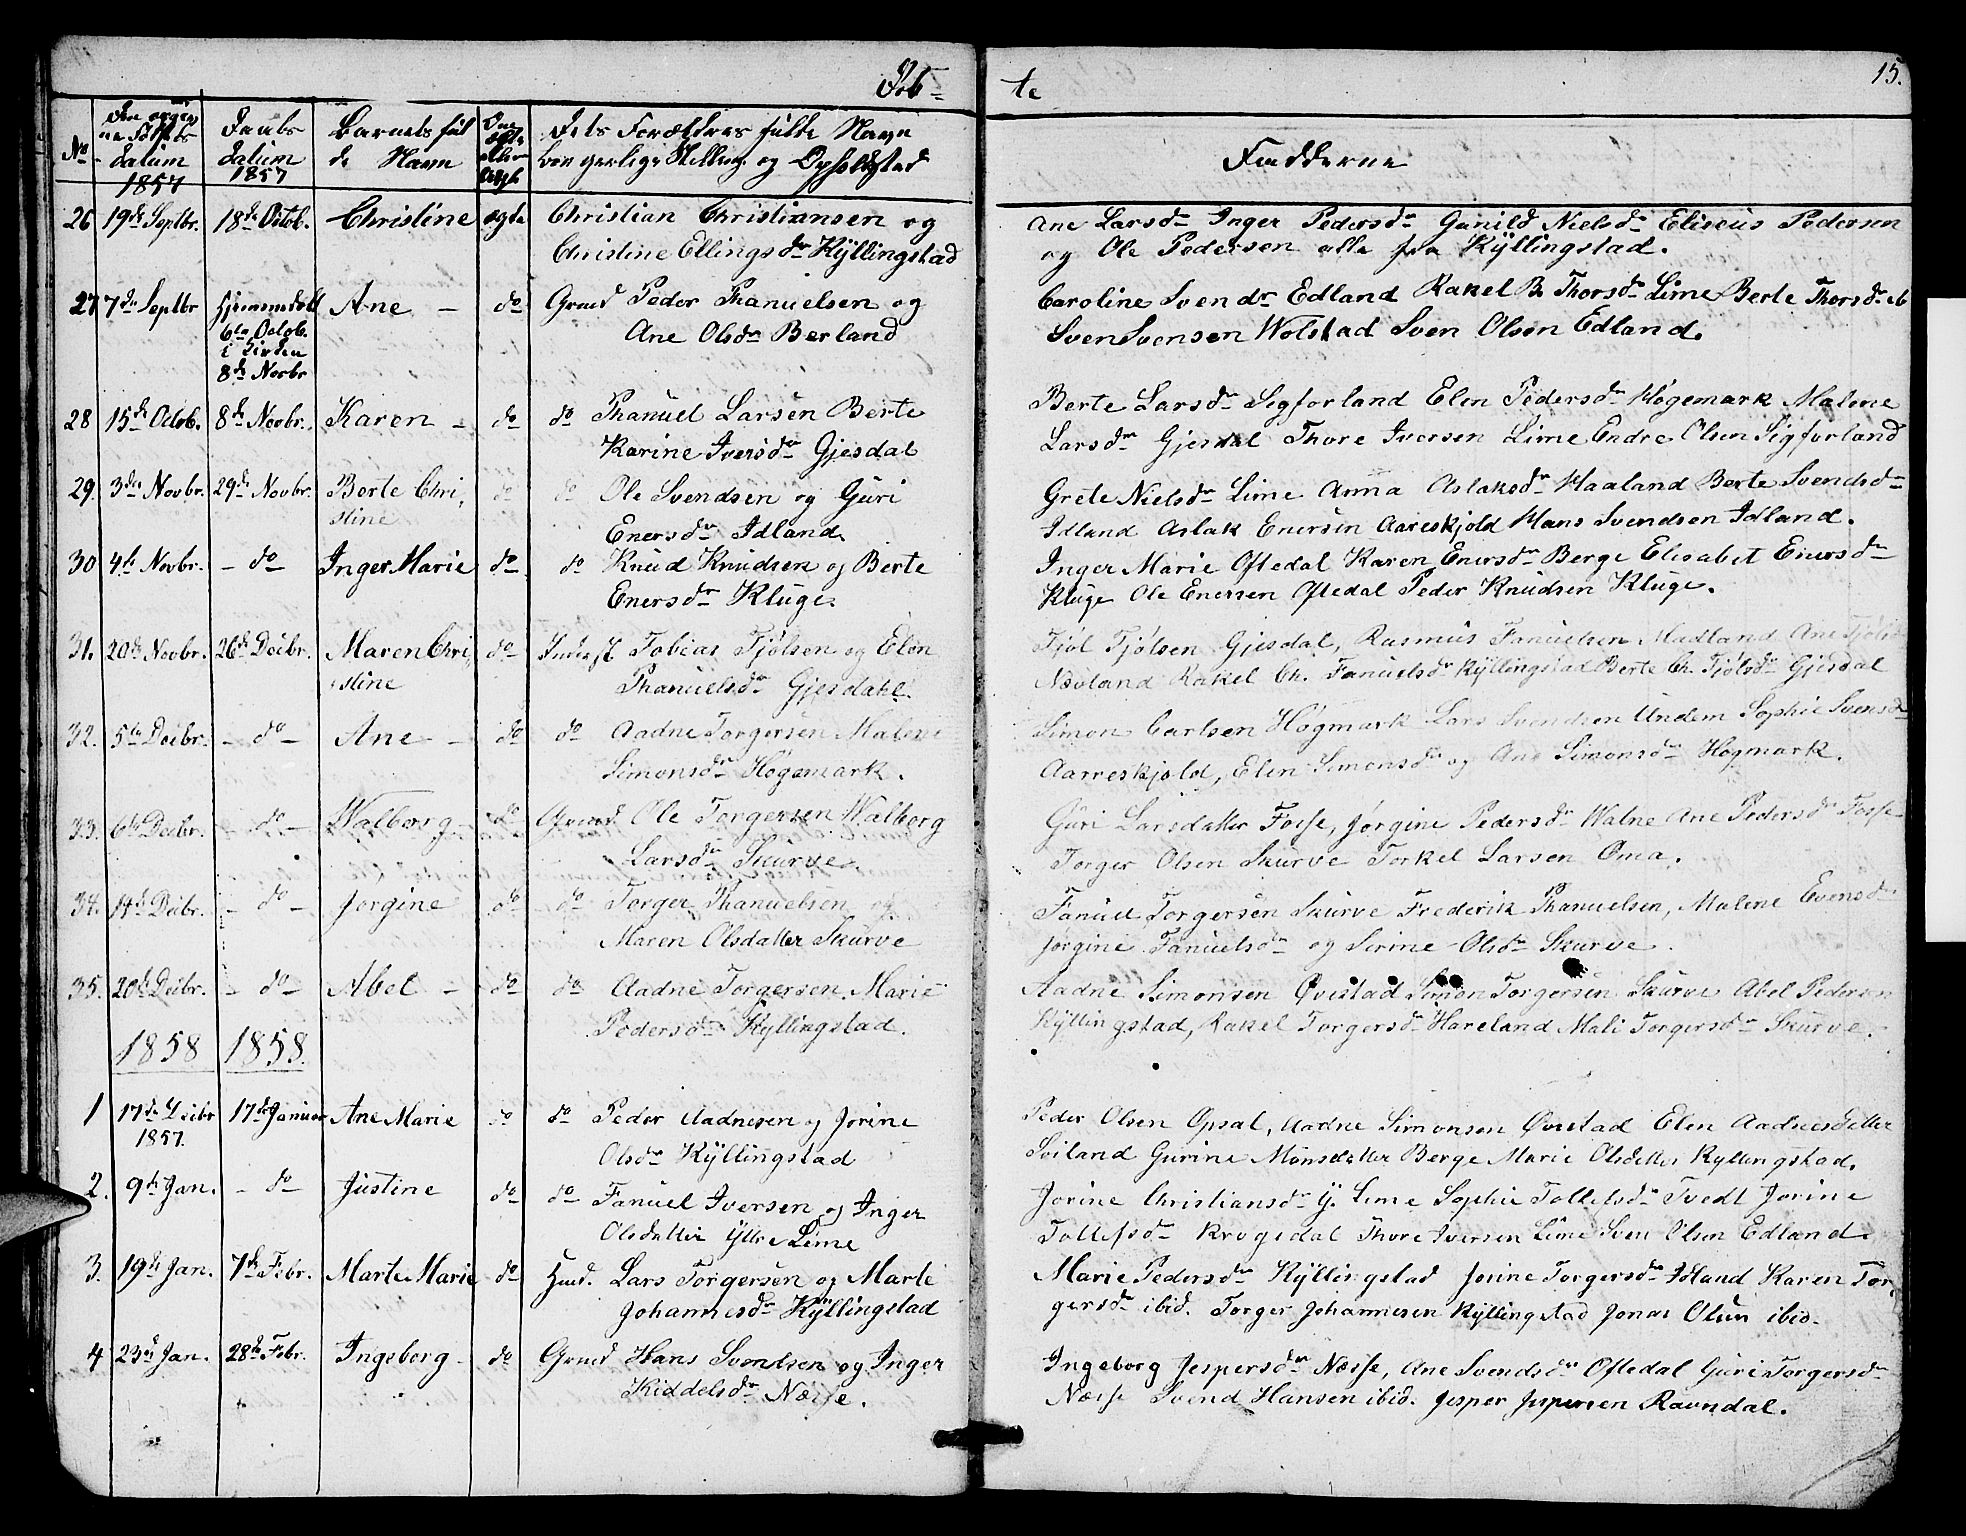 Døb-
te
15.
No
Den opgiv
ne Fødsels
datum
1857
Daabs
datum
1857
Barnets ful
de Navn
Om
ægte
eller
uægte
Dets Forældres fulde Navn
borgerlige Stilling og Opholdsted
Fadderne
26 19de Septbr. 18de Octob. Christine ægte Christian Christiansen og
Christine Ellingsdr Kÿllingstad
Ane Larsdr Inger Pedersdr Gunild Nielsdr Eliseus Pedersen
og Ole Pedersen alle fra Kÿllingstad.
27 7de Septbr Hjemmedøbt Ane - do Grmd Peder Thanuelsen og
6te Octob.
i Kirken
8de Novbr
Ane Olsdr Berland
Caroline Svendr Edland Rakel B. Thorsdr Lime Berte Thorsdr ib
Sven Svensen Wolstad Sven Olsen Edland.
28 15de Octob. 8de Novbr. Karen - do do Thanuel Larsen Berte
Karine Iversdr Gjesdal
Berte Larsdr Sigforland Elen Pedersdr Høgemark Malene
Larsdr Gjesdal Thore Iversen Lime Endre Olsen Sigforland
29. 3die Novbr. 29de Novbr. Berte Chri, do do Ole Svendsen og Guri
stine
Enersdr Idland.
Grete Nielsdr Lime Anna Aslaksdr Haaland Berte Svendsdr
Idland Aslak Enersen Aareskjold Hans Svendsen Idland.
30 4de Novbr. - do - Inger Marie do do Knud Knudsen og Berte
Enersdr Kluge.
Inger Marie Oftedal Karen Enersdr Berge Elisabet Enersdr
Kluge Ole Enersen Oftedal Peder Knudsen Kluge.
31. 20de Novbr. 26de Decbr. Maren Chri, do Inderst Tobias Tjølsen og Elen
stine
Thanuelsdr Gjesdahl.
Tjøl Tjølsen Gjesdal, Rasmus Fanuelsen Madland Ane Tjølsdr
Næoland Rakel Ch. Fanuelsdr Kÿllingstad Berte Ch. Tjølsdr Gjesdal
32. 5te Decbr. - do - Ane - do do Aadne Torgersen Malene
Simonsdr Høgemark.
Simon Carlsen Høgmark Lars Svendsen Undem Sophie Svensdr
Aarreskjold, Elen Simonsdr og Ane Simonsdr Høgmark.
33. 6te Decbr. - do - Walborg - do Grmd Ole Torgersen Walborg
Larsdr Skurve.
Guri Larsdatter Fosse, Jørgine Pedersdr Walne Ane Pedersdr Fosse
Torger Olsen Skurve Torkel Larsen Oma.
34. 14de Decbr. - do - Jorgine do do Torger Thanuelsen og
Maren Olsdatter Skurve
Fanuel Torgersen Skurve Frederik Thanuelsen, Malene Evensdr
Jørgine Fanuelsdr og Serine Olsdr Skurve.
35. 20de Decbr. - do - Abel - do do Aadne Torgersen. Marie
Pedersdr Kyllingstad.
Aadne Simonsen Qvistad Simon Torgersen Skurve Abel Pedersen
Kÿllingstad, Rakel Torgersdr Hareland Mali Torgersdr Skurve.
1858 1858.
1 17de Decbr 17de Januar Ane Marie do do Peder Aadnesen og Jorine
1857.
Olsdr Kÿllingstad
Peder Olsen Opsal, Aadne Simonsen Qvistad Elen Aadnesdatter
Soiland Gurine Monsdatter Berge Marie Olsdatter Kyllingstad.
2. 9de Jan. - do - Justine do do Fanuel Iversen og Inger
Olsdatter Ÿttre Lime
Jorine Christiansdr Y. Lime Sophie Tollefsdr Tvedt Jorine
Tollefsdr Krogedal Thore Iversen Lime Sven Olsen Edland.
3. 19de Jan. 7de Febr. Marte Marie do Hmd. Lars Torgersen og Marte
Johannesdr Kÿllingstad
Marie Pedersdr Kÿllingstad Jorine Torgersdr Idland Karen Tor,
gersdr ibid. Torger Johannesen Kÿllingstad Jonas Olsen ibid.
4 23de Jan. 28de Febr. Ingeborg - do Grmd Hans Svendsen og Inger
Kiddelsdr Næsse.
Ingeborg Jespersdr Næsse, Ane Svendsdr Oftedal Guri Torgersdr
Næsse Svend Hansen ibid. Jesper Jespersen Ravndal.